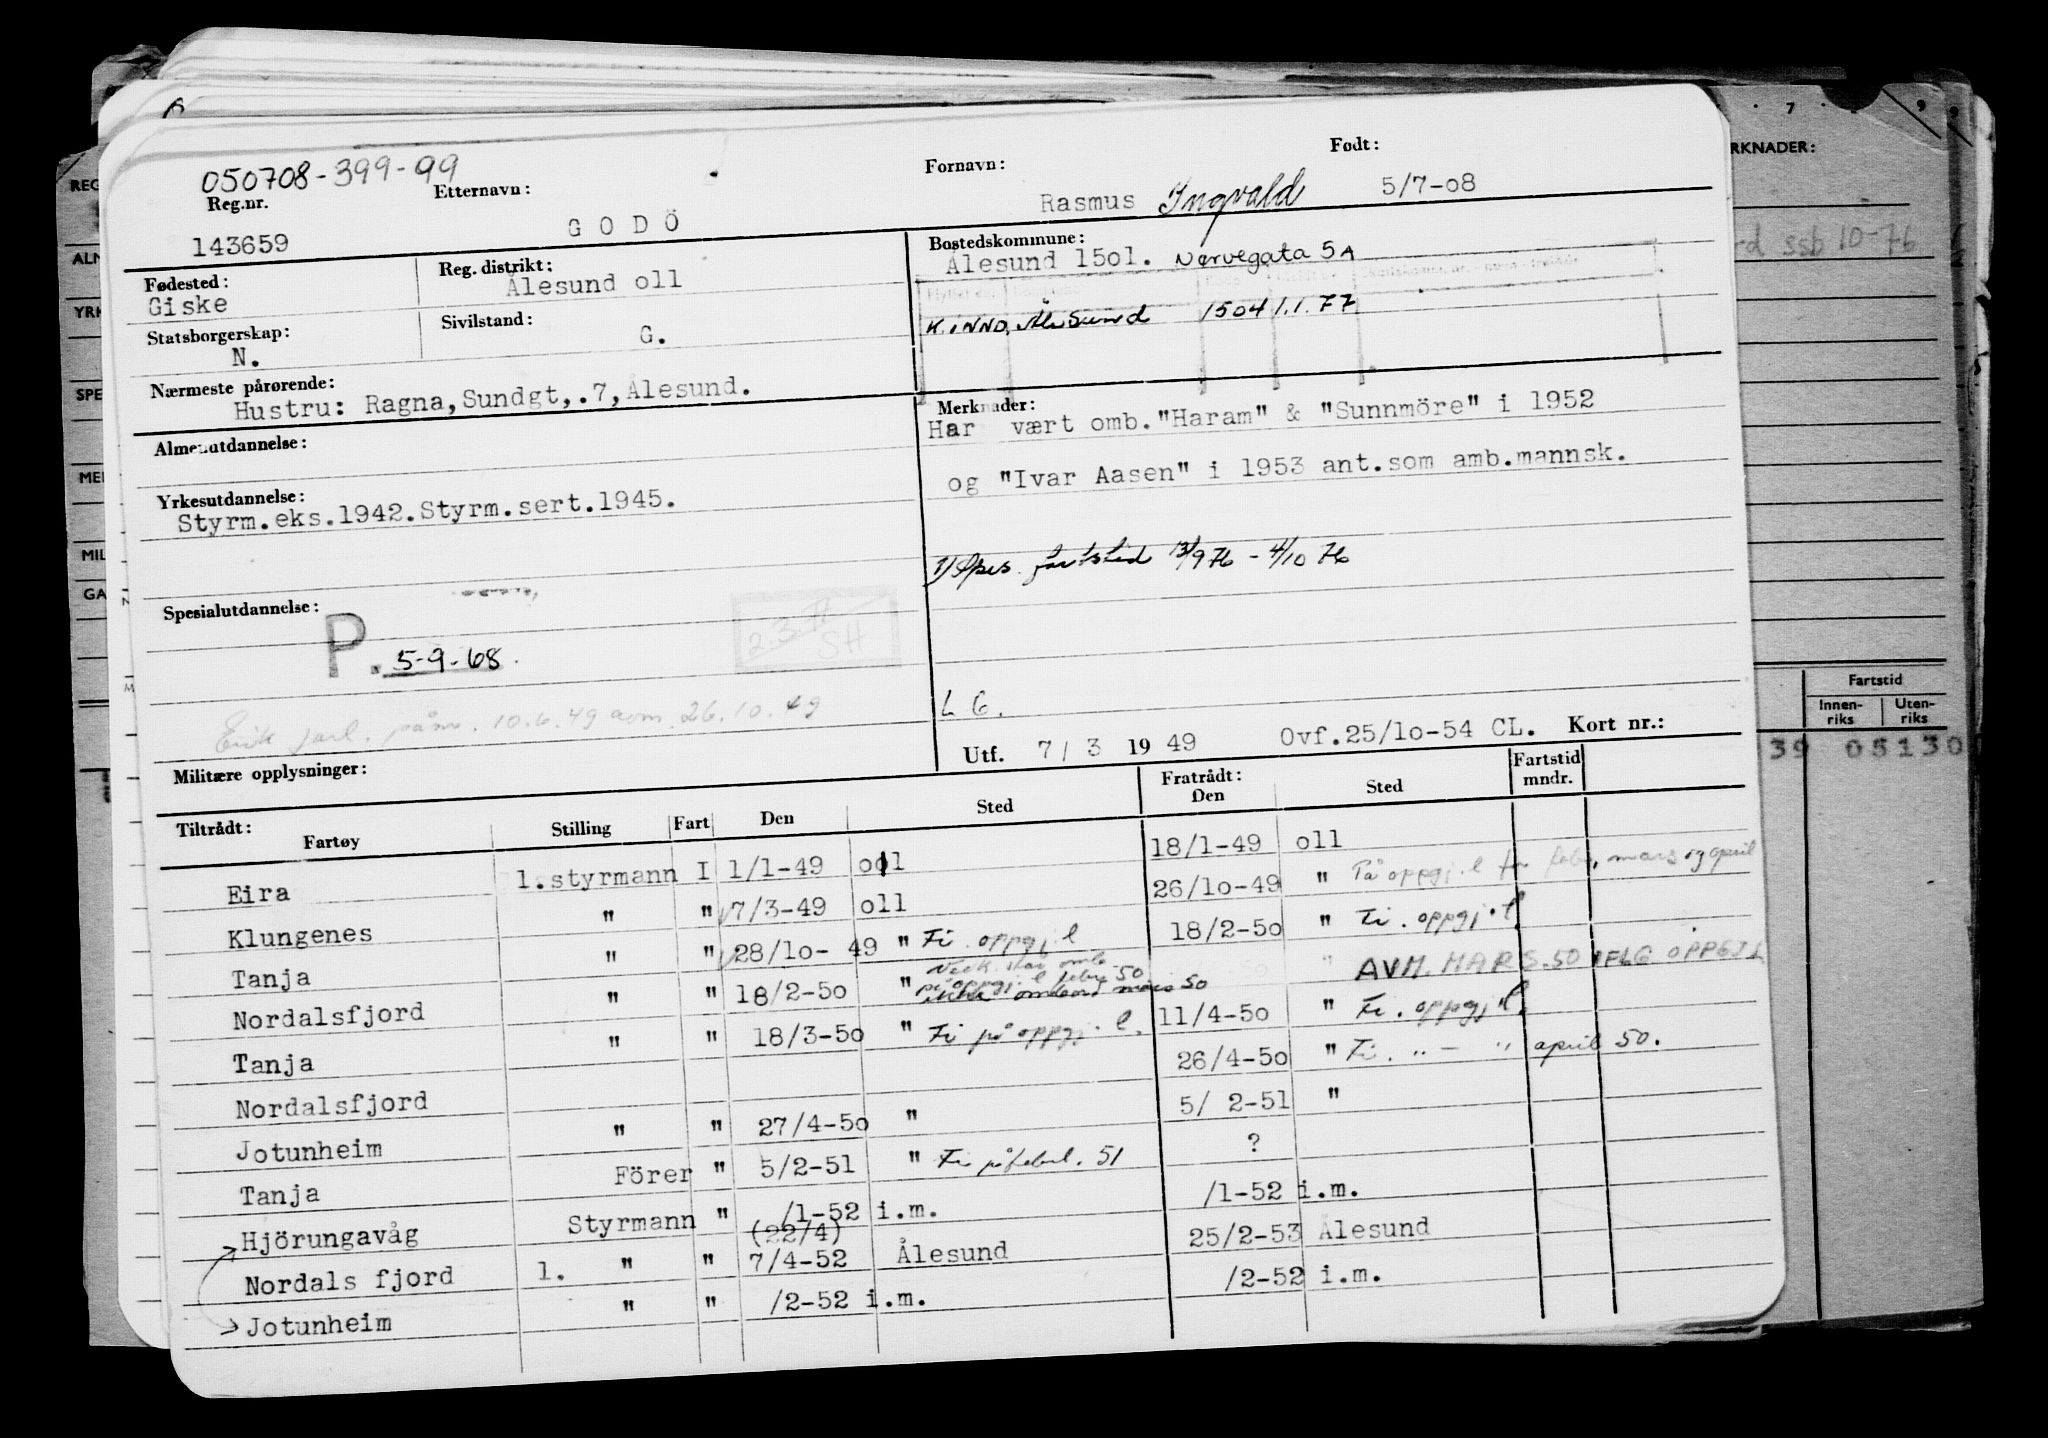 050708-399-99
Reg.nr. Etternavn: Fornavn: Født:
143659 G O D Ö Rasmus Ingvald 5/7-o8
Fødested: Reg. distrikt: Bostedskommune:
Giske Ålesund oll Ålesund 15o1. Nørvegata 5A
Statsborgerskap: Sivilstand:
N. G. K.inno, Ålesund 1504 1.1.77
Nærmeste pårørende:
Hustru: Ragna,Sundgt,.7,Ålesund.
Merknader:
Har vært omb."Haram" & "Sunnmöre" i 1952
og "Ivar Aasen" i 1953 ant.som amb.mannsk.
1) Spes. fartstid 13/9 76 - 4/10 76
L G.
Almenutdannelse:
Yrkesutdannelse:
Styrm.eks.1942.Styrm.sert.1945.
Spesialutdannelse:
P. 5-9-68.
SH
Erik Jarl. påm. 10.6.49 avm. 26.10.49
Utf. 7/ 3 19 49 Ovf.25/1o-54 CL. Kort nr.:
Militære opplysninger:
Tiltrådt: Fratrådt: Fartstid mndr.
Fartøy Stilling Fart Den Sted Den Sted
Eira 1.styrmann I 1/1-49 oll 18/1-49 oll
Klungenes " " 7/3-49 oll 26/1o-49 " På oppgj. l for febr, mars og april
Tanja " " 28/1o- 49 " Fi. oppgj. l 18/2-5o " Fi. oppgj. l.
Nordalsfjord " " 18/2-5o " på oppgj. l febr. 50 ikke ombord mars 50 " AVM. MARS.50 IFLG OPPGJ L
Tanja " " 18/3-5o " Fi på oppgj. l. 11/4-5o " Fi. oppgj. l.
Nordalsfjord 26/4-5o " Fi. " - " april 50.
Jotunheim " " 27/4-5o " 5/ 2-51 "
Tanja Förer " 5/2-51 " ?
Hjörungavåg Styrmann " /1-52 i.m. /1-52 i.m.
(22/4)
Nordals fjord 1. " " 7/4-52 Ålesund 25/2-53 Ålesund
Jotunheim " " /2-52 i.m. /2-52 i.m.
7 9 9
RKNADER:
rd ssb 10-76
REG
ALN
YRK
SPE
MER
MIL
GA
N
M
Fartstid
Innen-riks Uten-riks
39 05130